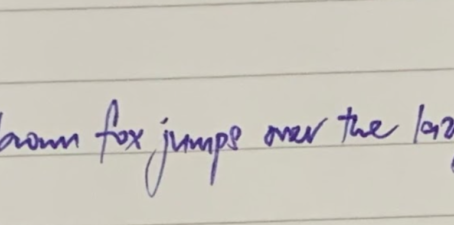 brown fox jumps over the laz